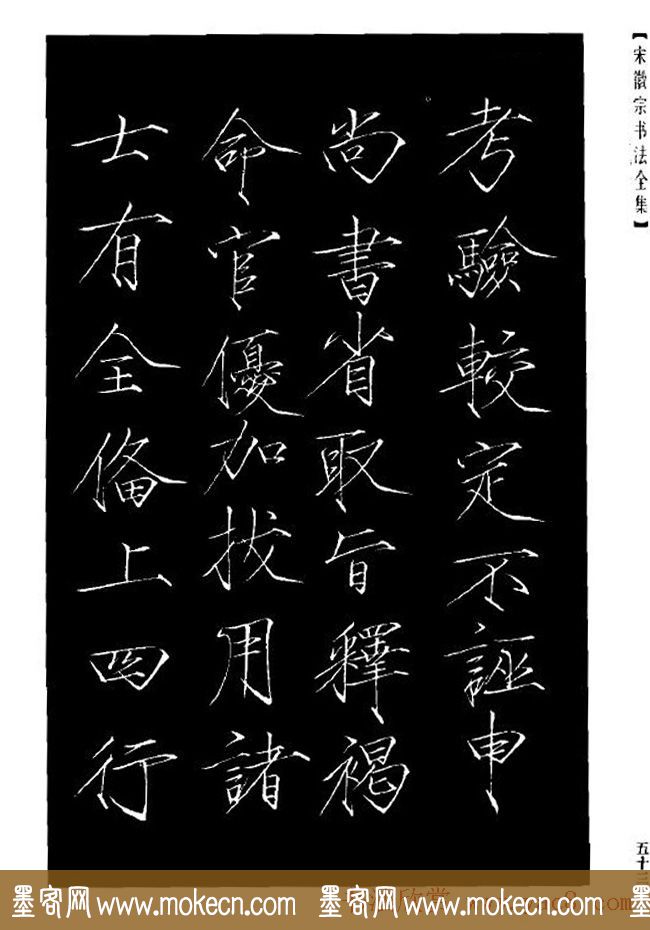 【宋徽宗书法全集】
考驗較定不誣申
尚書省取旨釋褐
命官優加拔用諸
士有全俻上四行
五十三
墨客网 www.mokecn.com 墨客网 www.mokecn.com